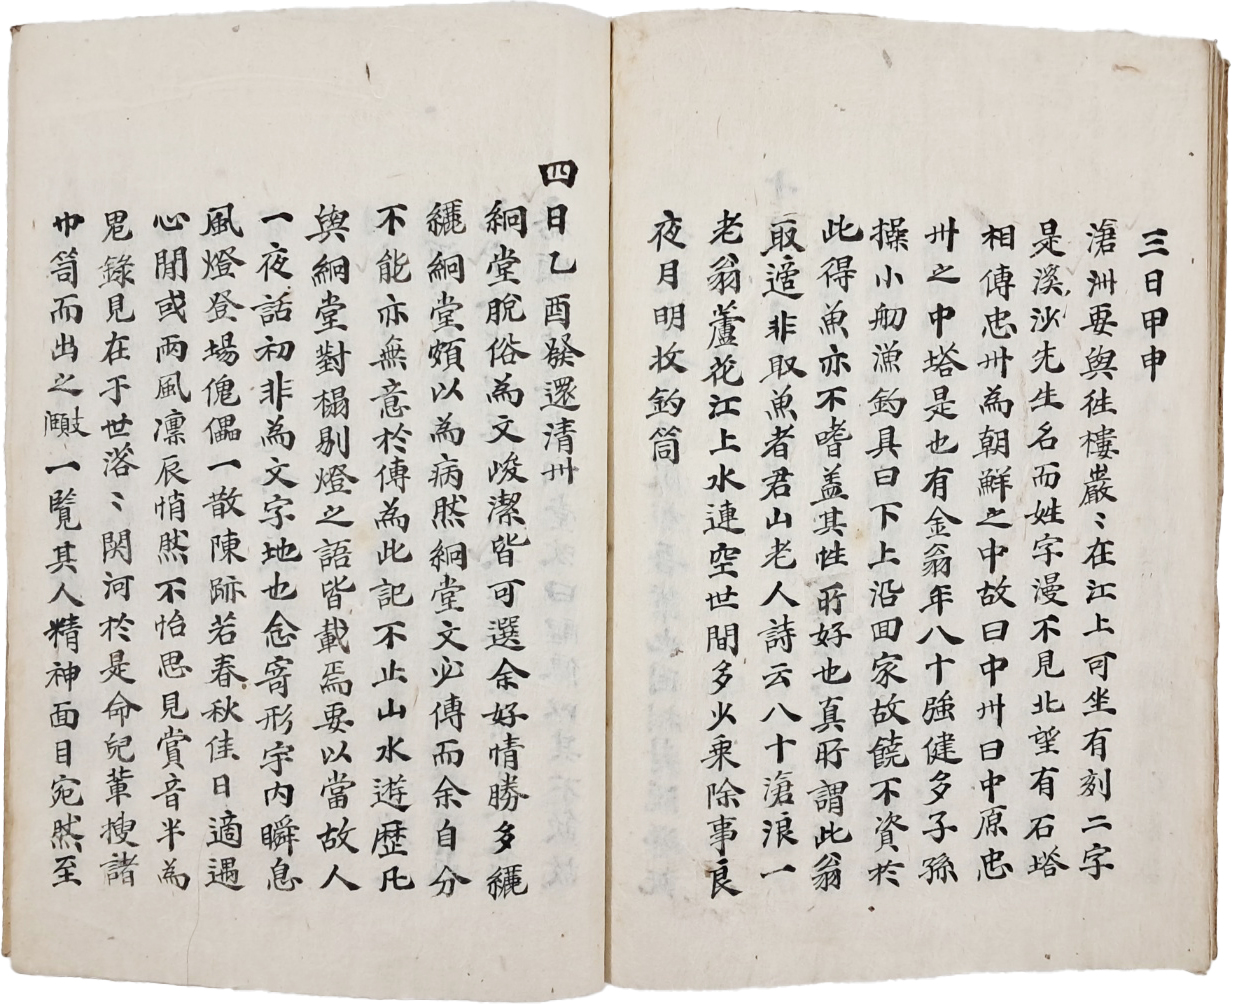 三日甲申
滄洲要與往樓巖〻在江上可坐有刻二字
是溪沙先生名而姓字漫不見北望有石塔
相傳忠州為朝鮮之中故曰中州曰中原忠
州之中塔是也有金翁年八十強健多子孫
操小舠漁釣具日下上沿回家故饒不資於
此得魚亦不嗜盖其性所好也真所謂此翁
取適非取魚者君山老人詩云八十滄浪一
老翁蘆花江上水連空世間多少乗除事良
夜月明收釣筒
四日乙酉發還清州
絅堂脫俗為文峻潔皆可選余好情勝多纚
纚絅堂頗以為病然絅堂文必傳而余自分
不能亦無意於傳為此記不止山水遊歴凡
與絅堂對榻剔燈之語皆載焉要以當故人
一夜話初非為文字地也念寄形宇内瞬息
風燈登場傀儡一散陳跡若春秋佳日適遇
心閒或雨風凛辰悄然不怡思見賞音半為
鬼錄見在于世落〻関河於是命兒輩搜諸
巾笥而出之一覽其人精神面目宛然至